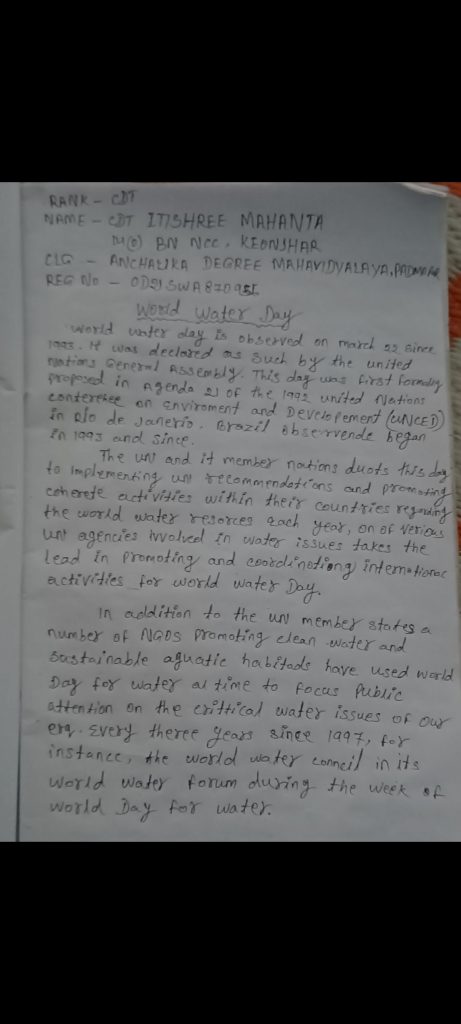 RANK - CDT
NAME - CDT ITISHREE MAHANTA
BN NCC, KEONJHAR
CLG - ANCHALIKA DEGREE MAHAVIDYALAYA,
REG No - OD21SWA870955
World Water Day
World water day is observed on march 22 since
1993. It was declared as such by the united
Nations General Assembly. This day was first formally
proposed in Agenda 21 of the 1992 united Nations
conterehee on Enviroment and Developement (UNCED)
in Rio de Janerio. Brazil observende began
in 1993 and since.
The UN and it member nations duots this day
to implementing UN recommendations and promoting
conerete activities within their countries regarding
the world water resorces each year, on of verious
UN agencies involved in water issues takes the
lead in promoting and coordinotiong international
activities for world water Day.
In addition to the UN member states a
number of NGOS promoting clean water and
sustainable aguatic habitads have used world
Day for water al time to focus Public
attention on the crittical water issues of our
era. Every theree years since 1997, for
instance, the world water conneil in its
world water forum during the week of
world Day for water.